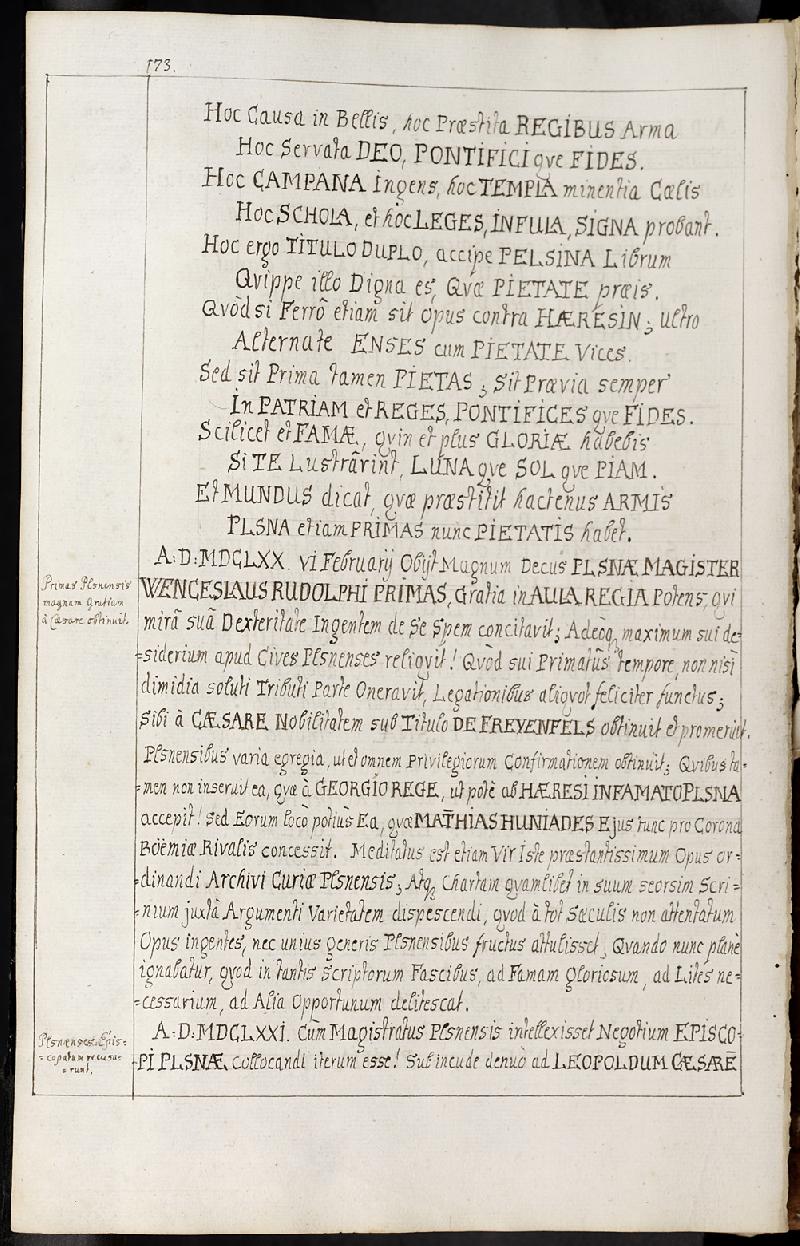 173.
Hoc Causa in Bellis, hoc Præstita REGIBUS Arma
Hoc Servata DEO, PONTIFICI qve FIDES.
Hoc CAMPANA Ingens, hoc TEMPLA minentia Cœlis
Hoc SCHOLA, et hoc LEGES, INFULA, SIGNA probant.
Hoc ergo TITULO DUPLO, accipe PELSINA Librum
Qvippe illo Digna es, Qvæ PIETATE præis.
Qvòd si Ferrô etiam sit opus contra HÆRESIN; ultro
Alternate ENSES cum PIETATE Vices.
Sed sit Prima tamen PIETAS; Sit Prævia semper
In PATRIAM et REGES, PONTIFICES qve FIDES.
Scilicet et FAMÆ, qvin et plus GLORIÆ habebis
Si TE Lustrârint, LUNA qve SOL qve PIAM.
Et MUNDUS dicat, qvæ præstitit hactenus ARMIS
PLSNA etiam PRIMAS nunc PIETATIS habet.
A: D: MDCLXX. VI Februarij Obijt Magnum Decus PLSNÆ MAGISTER
Primas Plsnensis
magnam Gratiam
à Cæsare obtinuit.
WENCESLAUS RUDOLPHI PRIMAS, Gratia in AULA REGIA Potens, qvi
mirâ suâ Dexteritate Ingentem de Se Spem concitavit; Adeoq, maximum sui de=
=siderium apud Cives Plsnenses reliqvit! Qvòd sui Primatûs tempore, non nisi
dimidia soluti Tributi Parte Oneravit, Legationibus aliqvot feliciter functus;
Sibi à CÆSARE Nobilitatem sub Titulo DE FREYENFELS obtinuit et promeruit.
Plsnensibus varia egregia, ut et omnem Privilegiorum Confirmationem obtinuit; Qvibus ta=
=men non inseruit ea, qvæ à GEORGIO REGE, ut potè ab HÆRESI INFAMATO PLSNA
accepit! Sed Eorum locô potiùs Ea, qvæ MATHIAS HUNIADES Ejus tunc pro Corona
Boëmiæ Rivalis concessit. Meditatus est etiam Vir Iste præstantissimum Opus or=
=dinandi Archivi Curiæ Plsnensis; Atq, Chartam qvamlibet in suum seorsim Scri=
=nium juxtà Argumenti Varietatem dispescendi, qvod à tot Sæculis non attentatum
Opus ingentes, nec unius generis Plsnensibus fructus attulisset, Qvando nunc planè
ignoratur, qvod in tantis Scriptorum Fascibus, ad Famam Gloriosum, ad Lites ne=
=cessarium, ad Alia Opportunum delitescat.
A: D: MDCLXXI. Cùm Magistratus Plsnensis intellexisset Negotium EPISCO=
Plsnenses Epis=
=copatum recusa=
=runt.
=PI PLSNÆ collocandi iterum esse! Sub incude denuò ad LEOPOLDUM CÆSARE